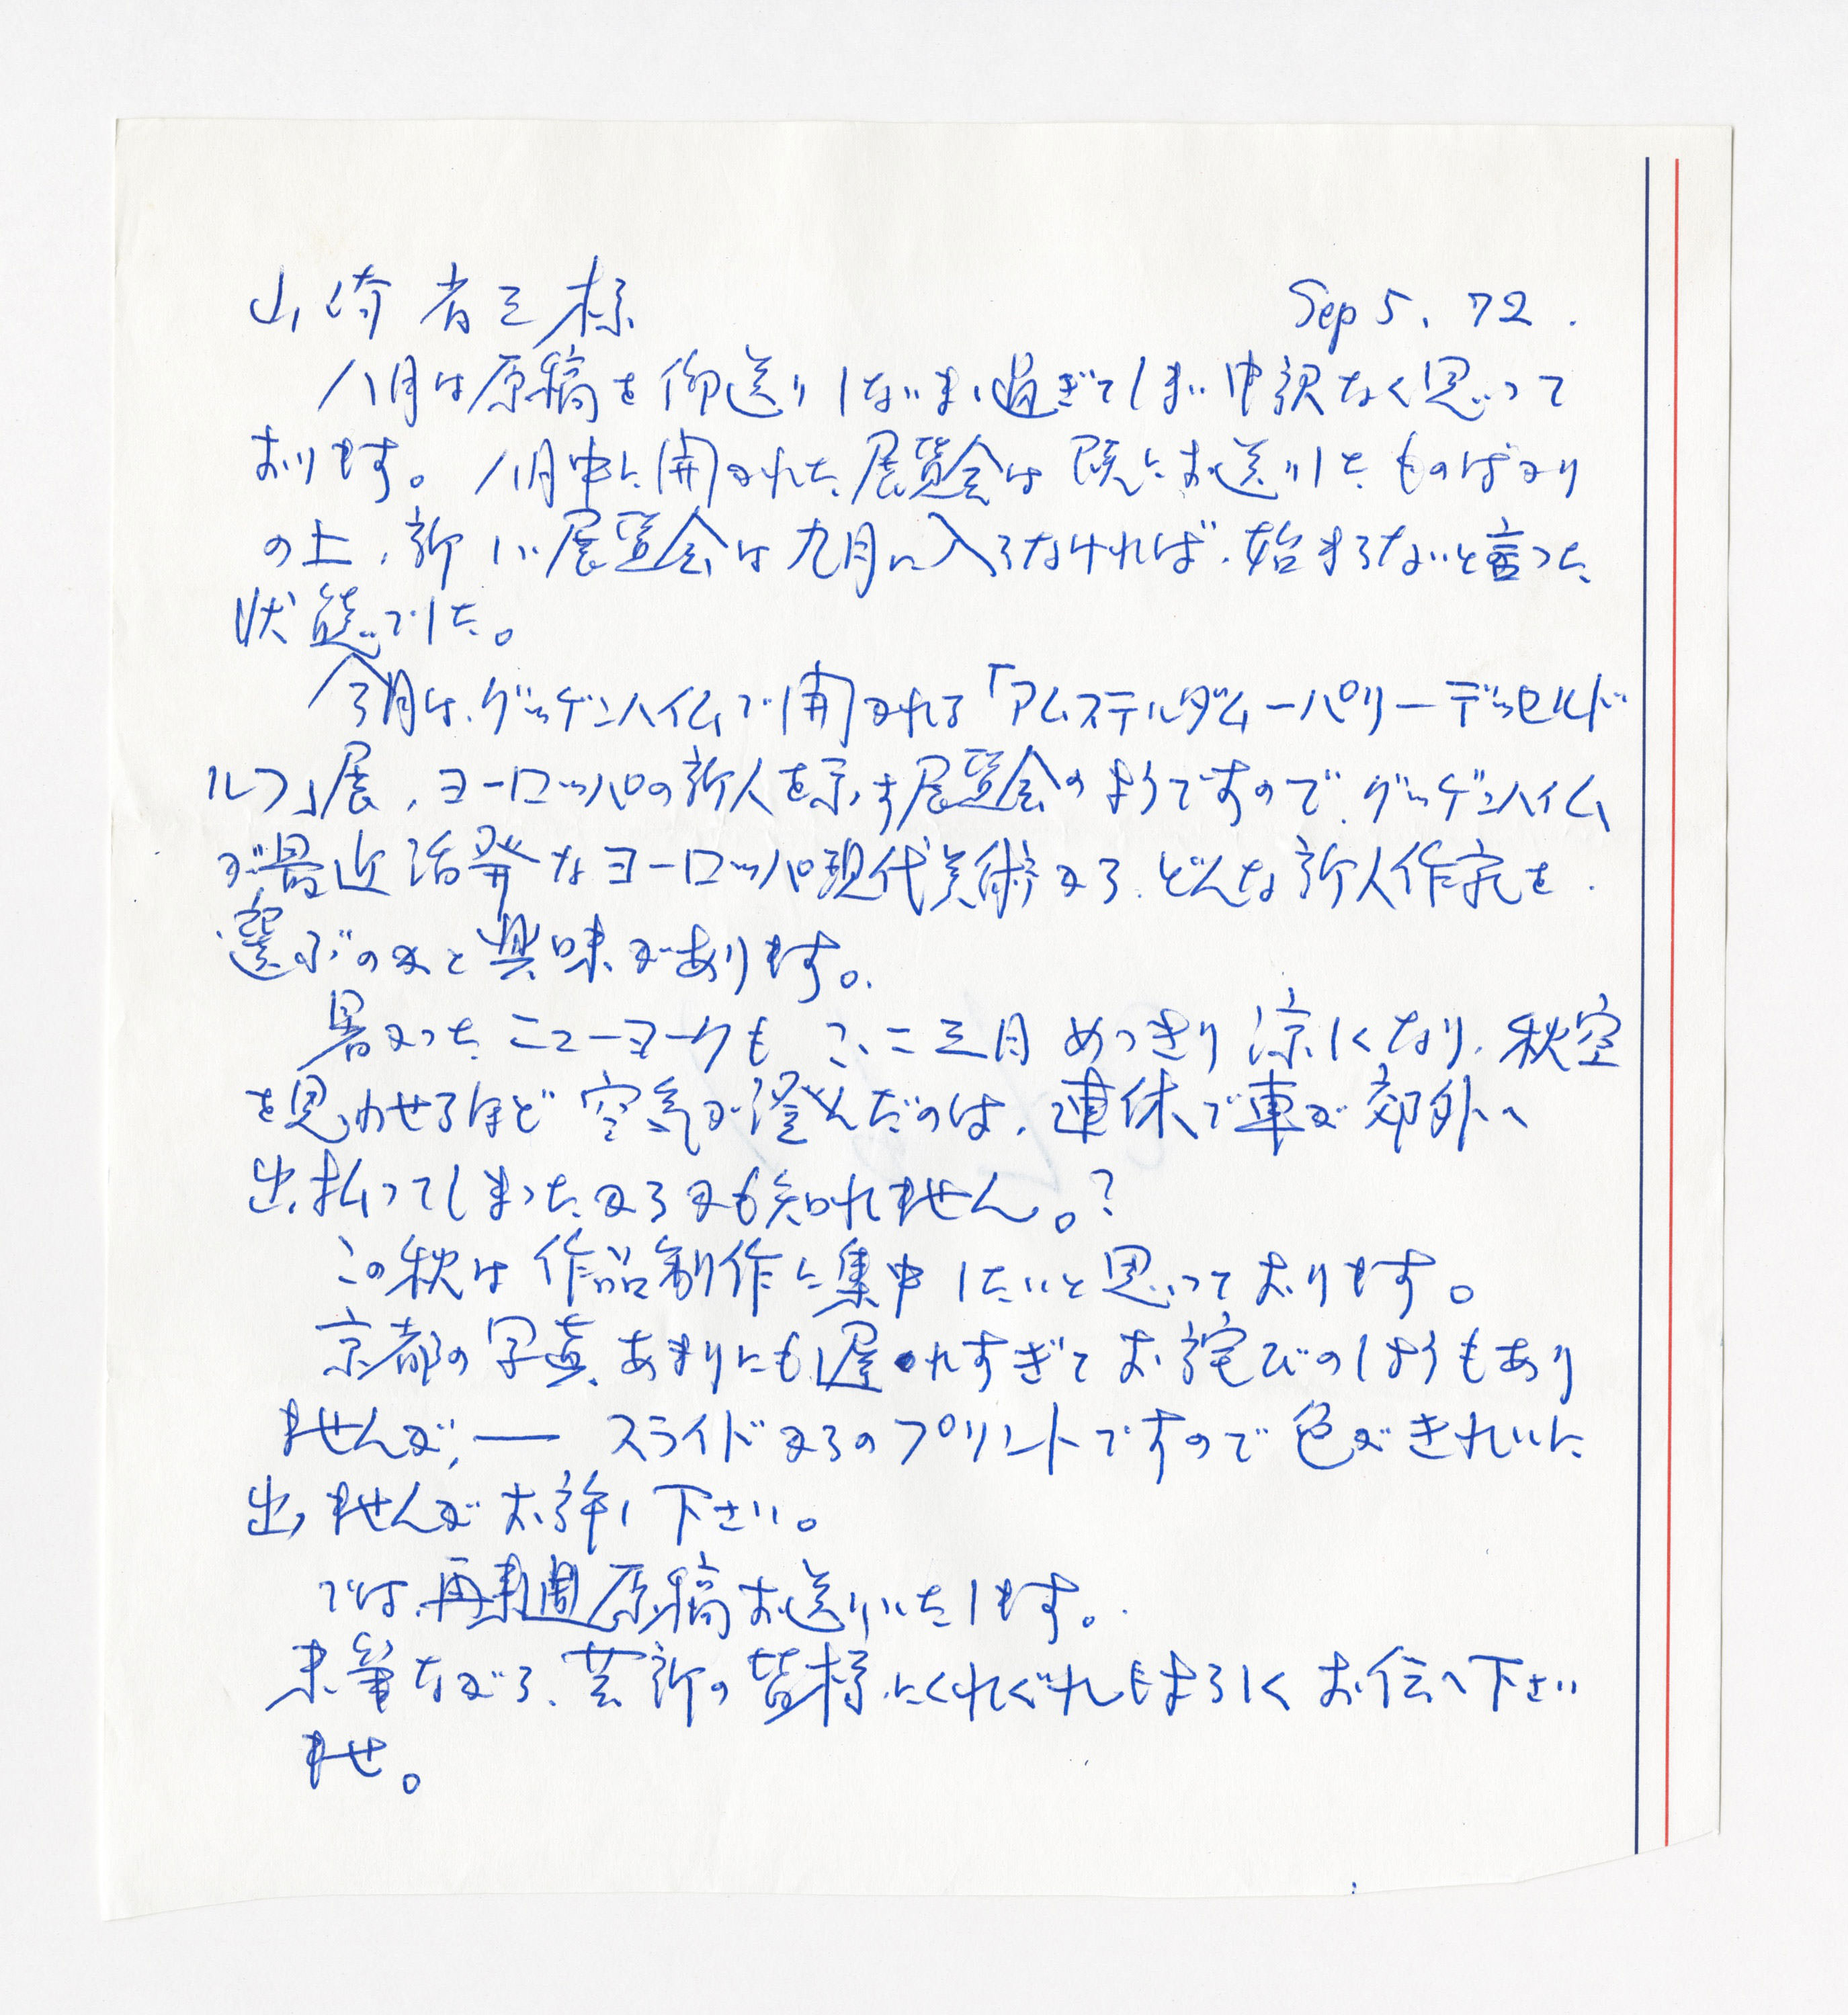 山崎省三様 Sep 5. 72.
八月は原稿を御送りしないまま過ぎてしまい申訳なく思って
おります。八月中に開かれた展覧会は既にお送りしたものばかり
の上、新しい展覧会は九月に入らなければ、始まらないと言った
状態でした。
今月は、グッゲンハイムで開かれる「アムステルダムーパリーデュッセルド
ルフ」展、ヨーロッパの新人を示す展覧会のようですので、グッゲンハイム
が最近活発なヨーロッパ現代美術から、どんな新人作家を
選ぶのかと興味があります。
暑かったニューヨークもここ二三日めっきり涼しくなり、秋空
を思わせるほど空気が澄んだのは、連休で車が郊外へ
出払ってしまったからかも知れません。?
この秋は作品制作に集中したいと思っております。
京都の写真、あまりにも遅れすぎてお詫びのしようもあり
ませんが、— スライドからのプリントですので色がきれいに
出ませんがお許し下さい。
では、再来週原稿お送りいたします。
末筆ながら、芸新の皆様にくれぐれもよろしくお伝へ下さい
ませ。